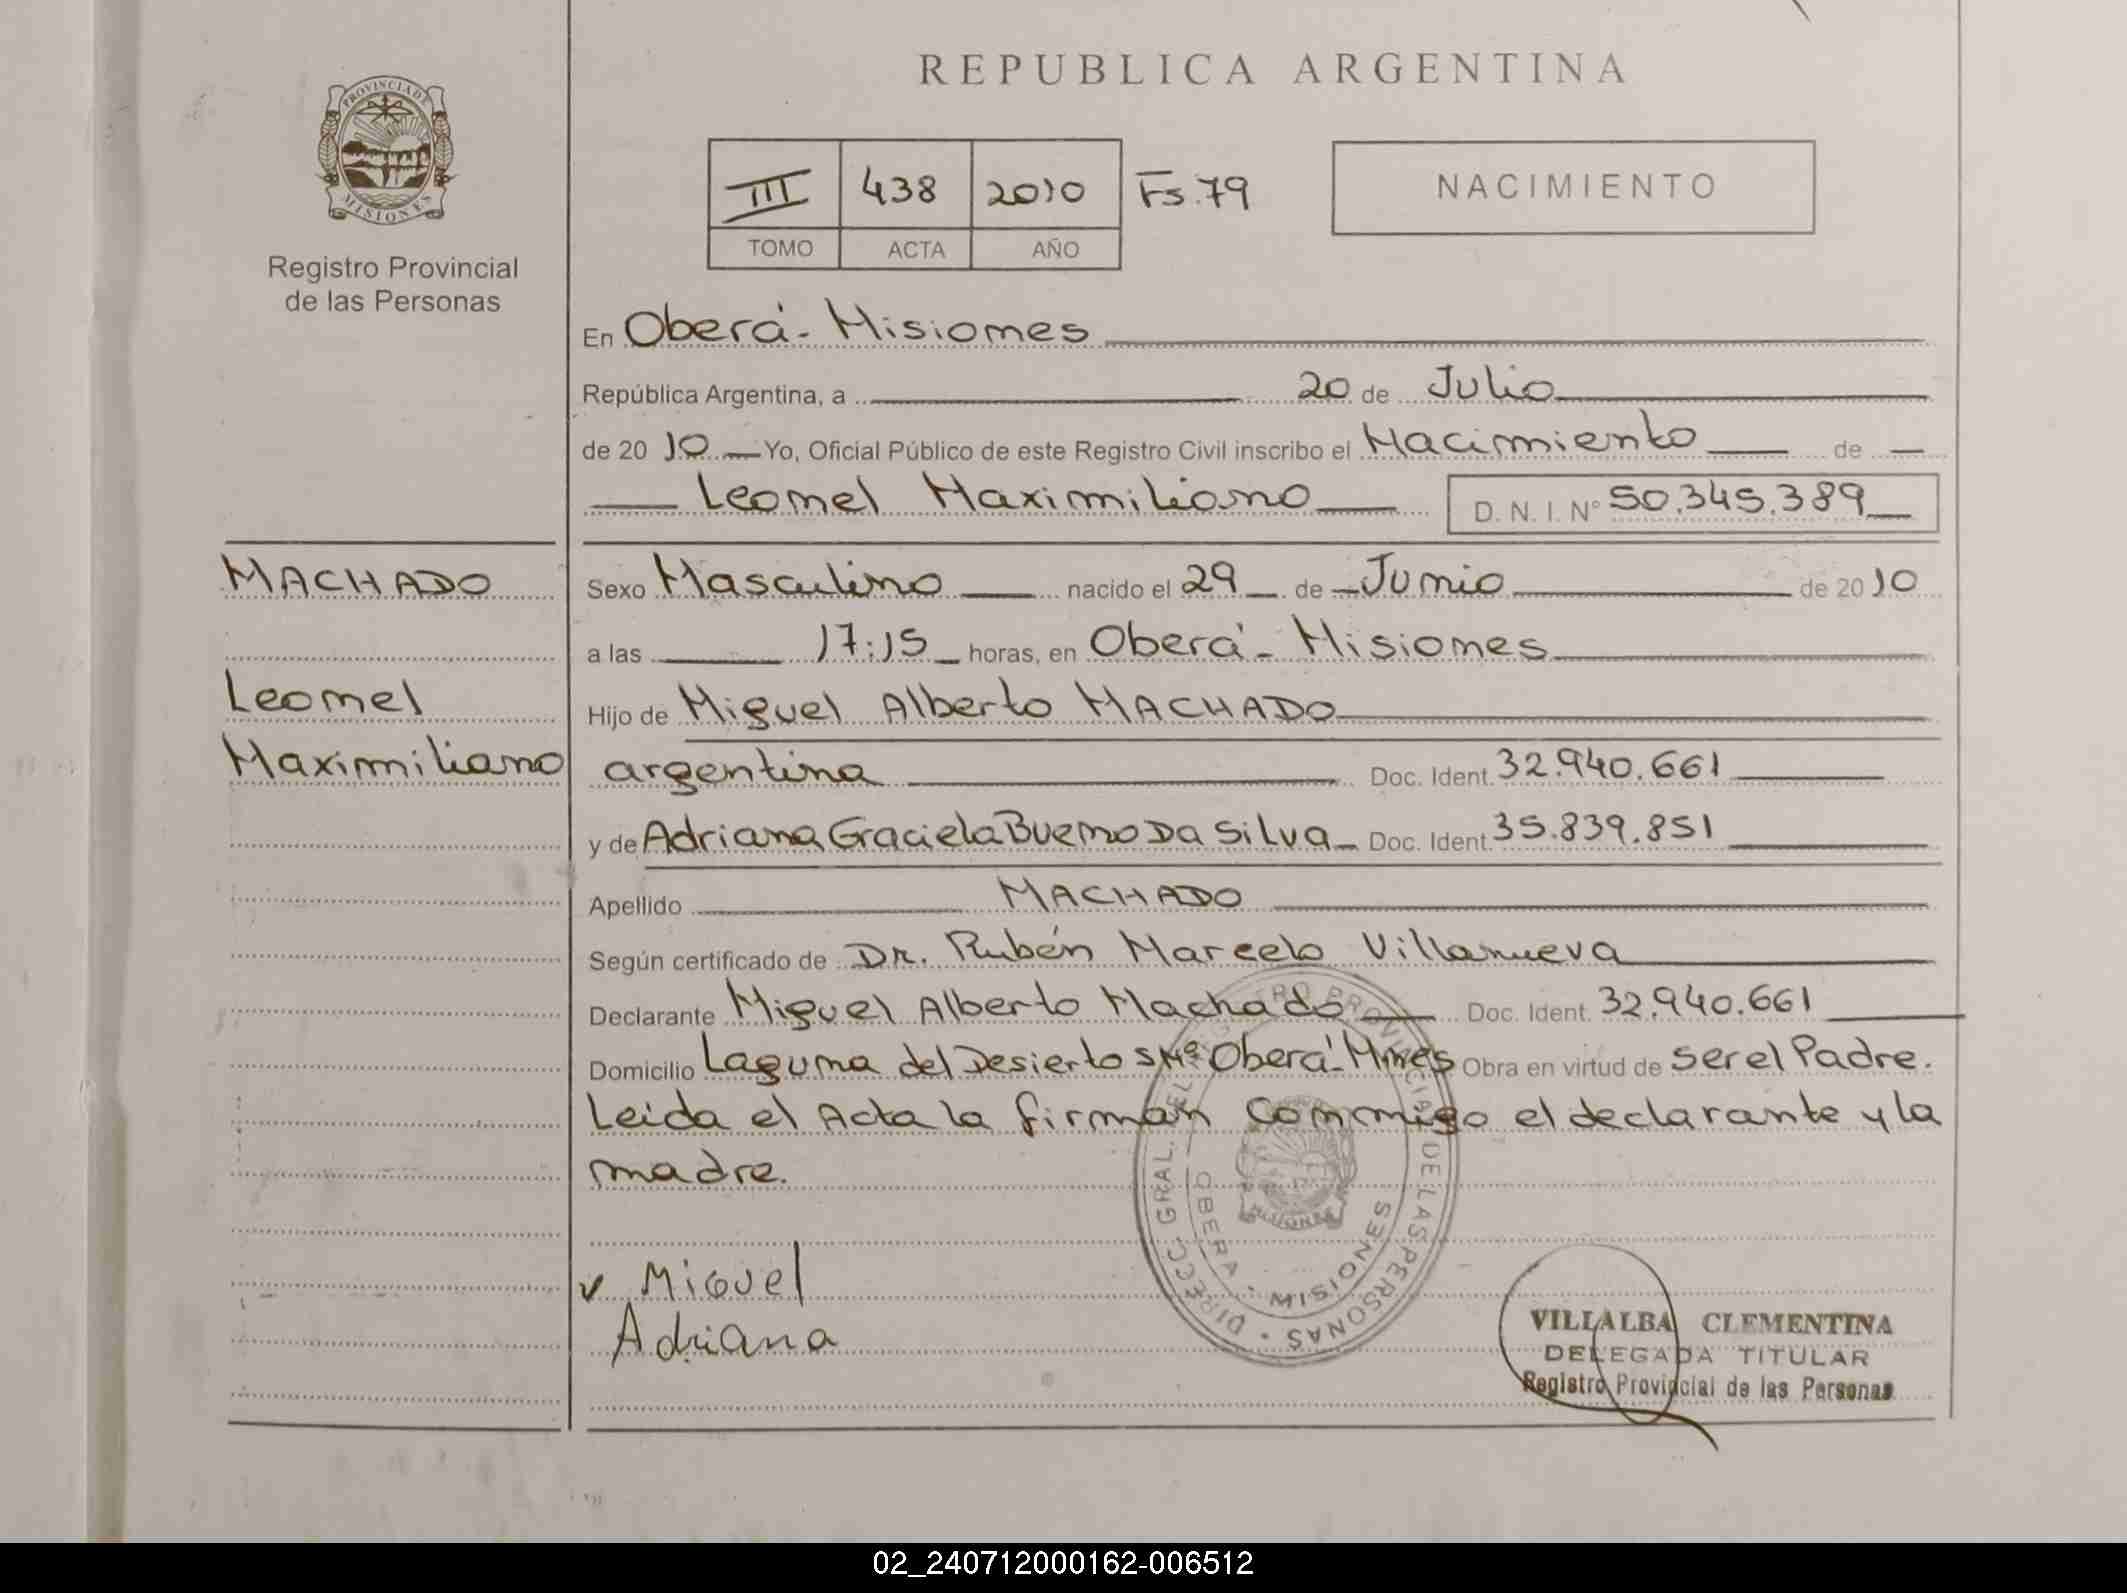 REPUBLICA ARGENTINA
PROVINCIA DE
MISIONES
Registro Provincial
de las Personas
III 438 2010 Fs. 79
TOMO ACTA AÑO
NACIMIENTO
En Oberá - Misiones
República Argentina, a 20 de Julio
de 2010 Yo, Oficial Público de este Registro Civil inscribo el Nacimiento de
Leonel Maximiliano D. N. I. N° 50.345.389
MACHADO
Leonel
Maximiliano
Sexo Masculino nacido el 29 de Junio de 2010
a las 17:15 horas, en Oberá - Misiones
Hijo de Miguel Alberto MACHADO
argentina Doc. Ident. 32.940.661
y de Adriana Graciela Bueno Da Silva Doc. Ident. 35.839.851
Apellido MACHADO
Según certificado de Dr. Rubén Marcelo Villanueva
Declarante Miguel Alberto Machado Doc. Ident. 32.940.661
Domicilio Laguna del Desierto S/Nº Oberá - Mnes Obra en virtud de ser el Padre.
Leida el Acta la firman conmigo el declarante y la
madre.
DIRECC. GRAL. DEL REGISTRO PROVINCIAL DE LAS PERSONAS
OBERA - MISIONES
MISIONES
Miguel
Adriana
VILLALBA CLEMENTINA
DELEGADA TITULAR
Registro Provincial de las Personas
02_240712000162-006512